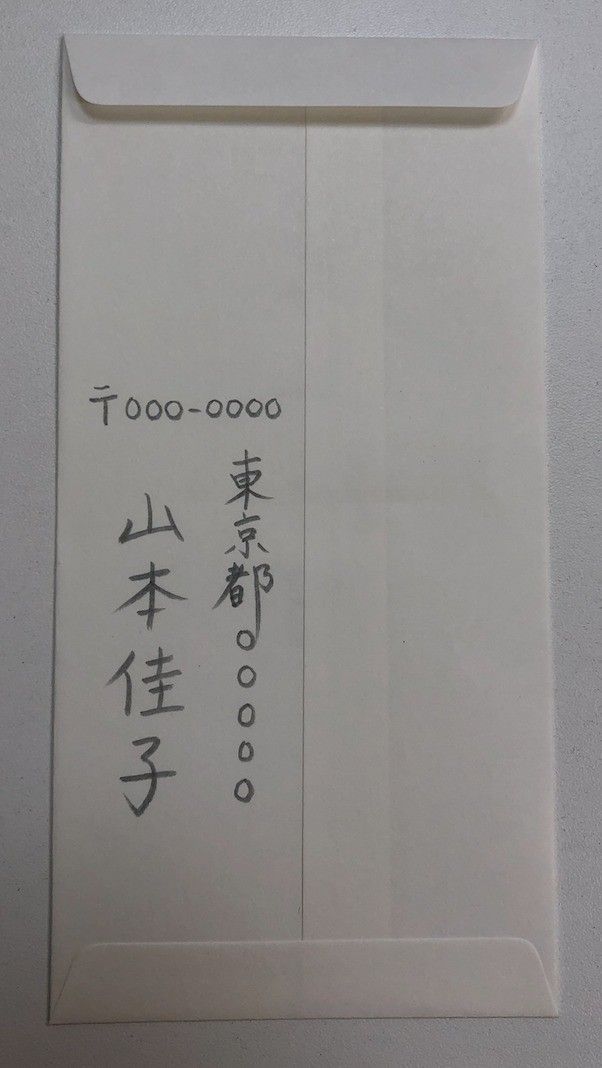 〒000-0000
東京都○○○○○
山本佳子